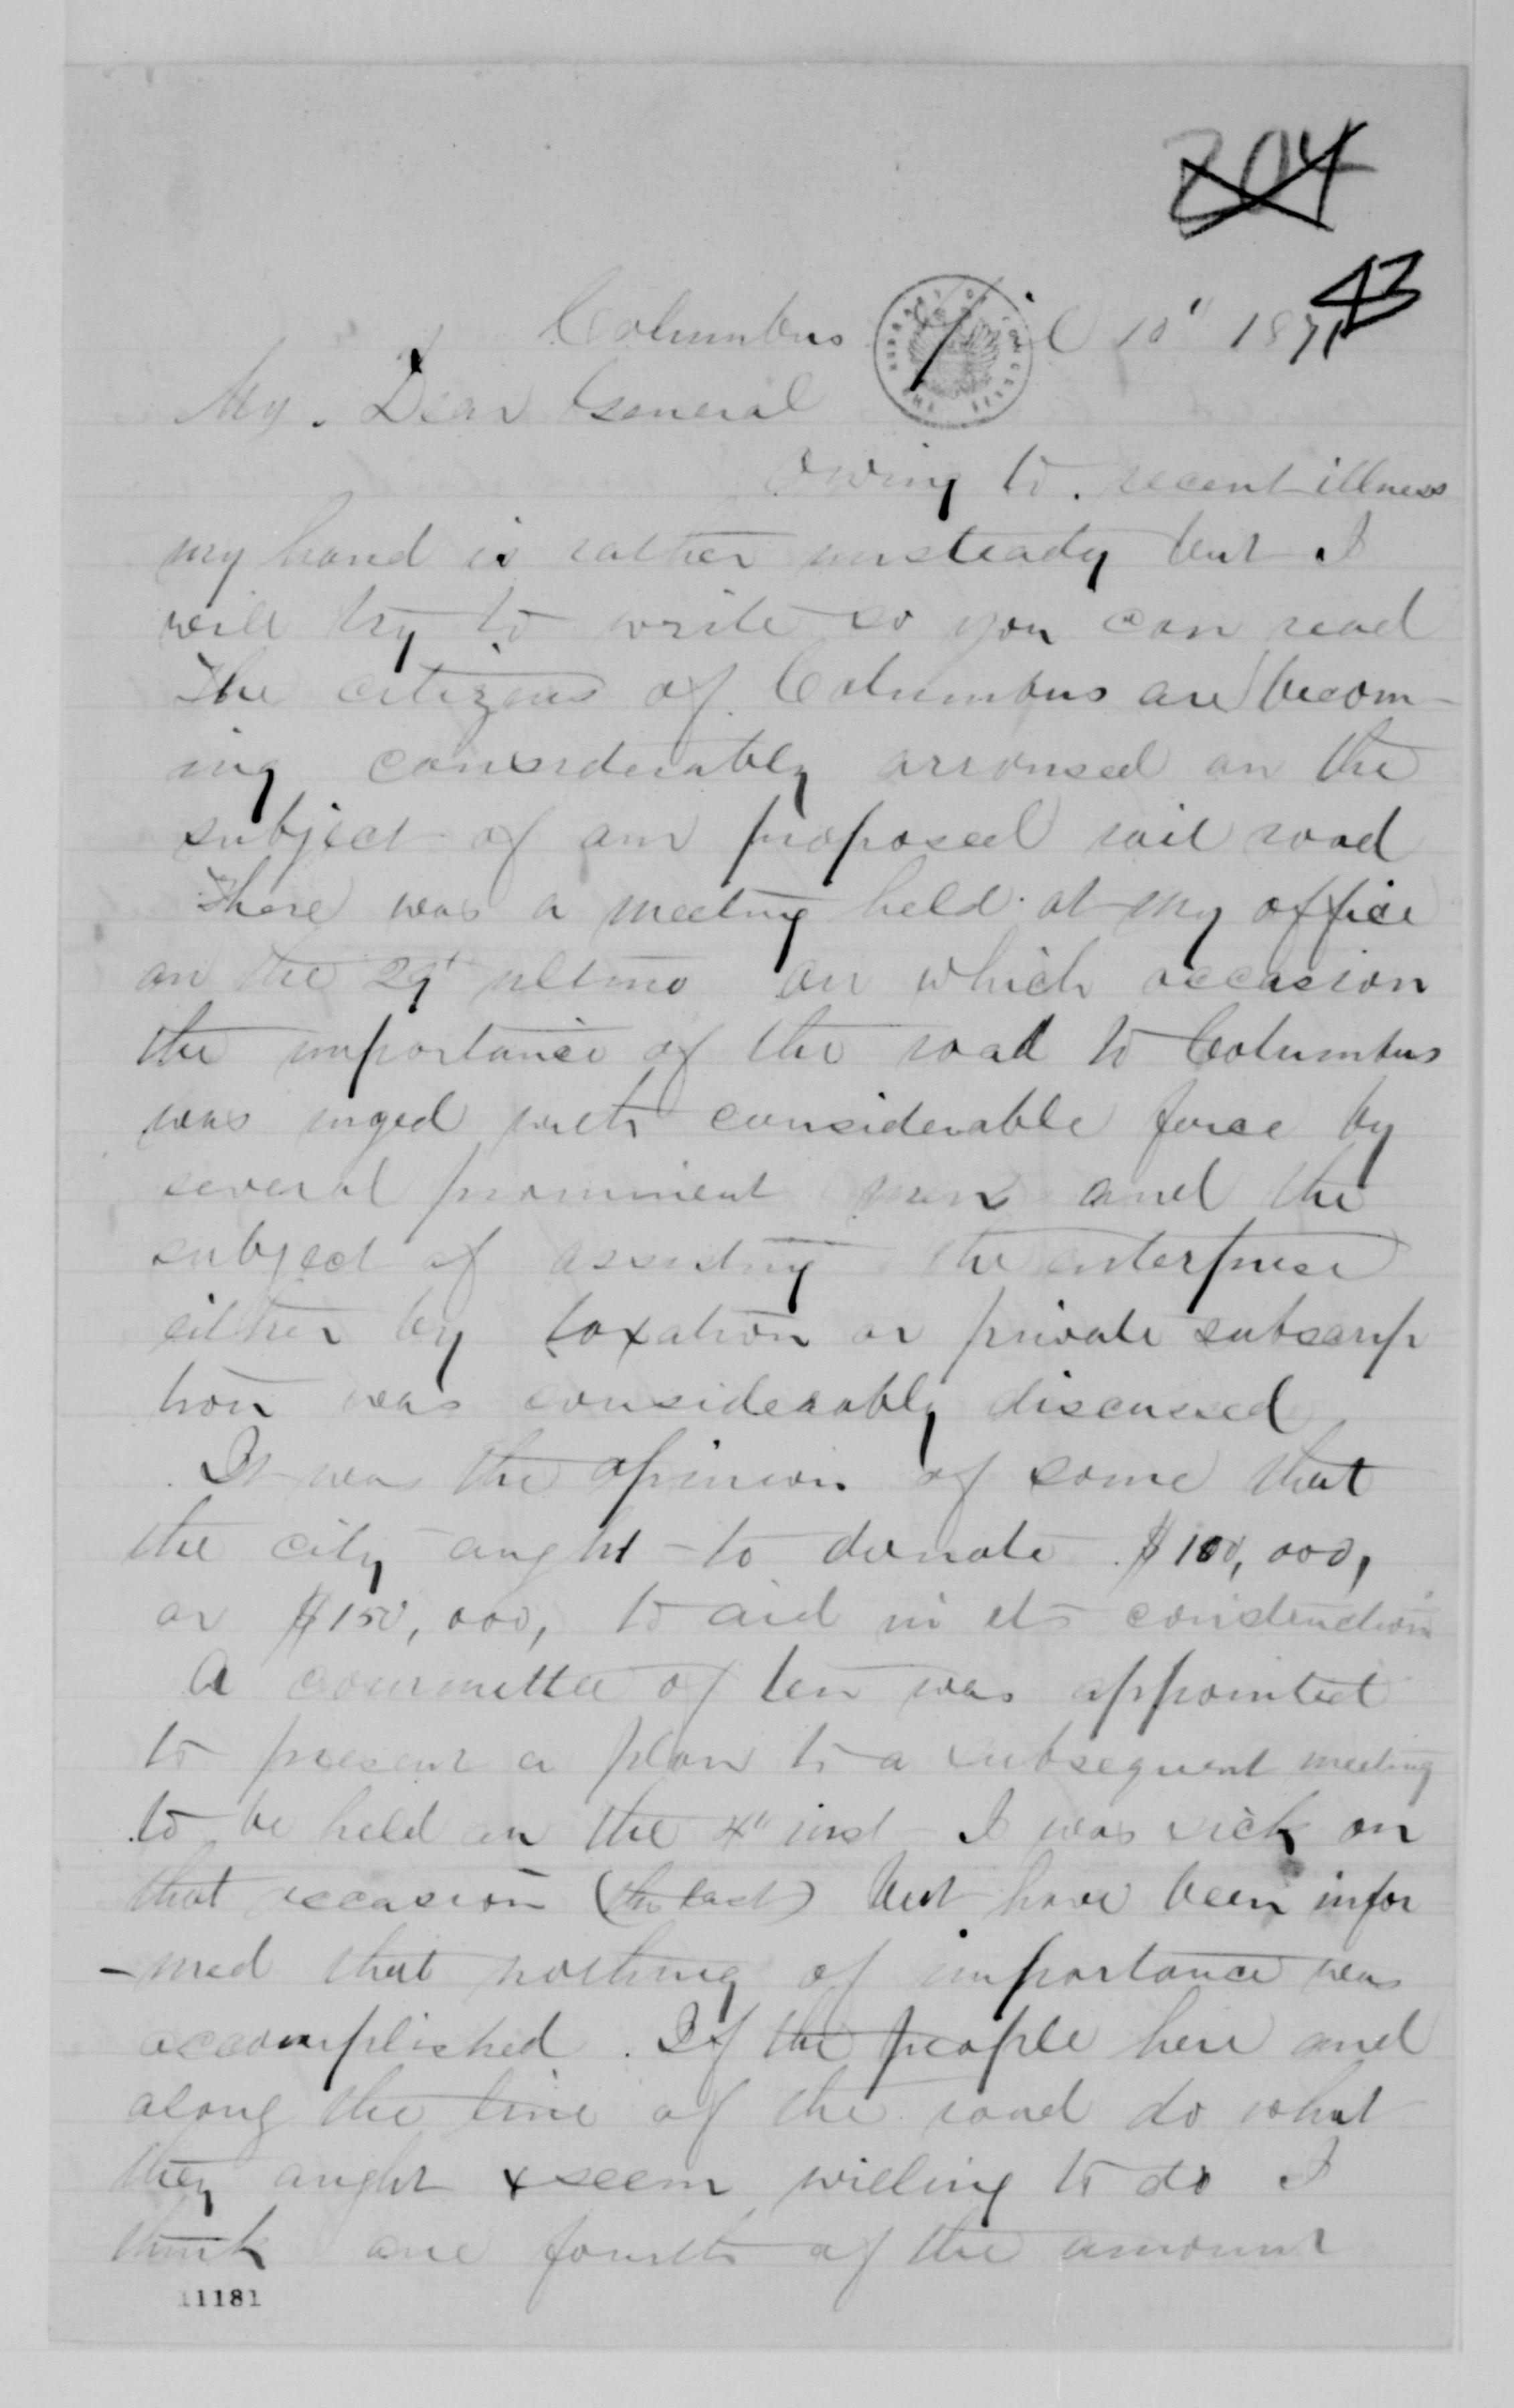 204
43
Columbus April 10" 1871
My Dear General
Owing to recent illness
my hand is rather unsteady but I
will try to write so you can read
The citizens of Columbus are becom-
ing considerably arroused on the
subject of our proposed rail road
There was a meeting held at my office
on the 29t ultimo on which occasion
the importance of the road to Columbus
was urged with considerable force by
several prominent men and the
subject of assisting the enterprise
either by taxation or private subscrip
tion was considerably discussed
It was the opinion of some that
the city ought to donate $100,000,
or $150,000, to aid in its construction
A committee of ten was appointed
to present a plan to a subsequent meeting
to be held on the 4" inst I was sick on
that occasion (the last) but have been infor
-med that nothing of importance was
accomplished. If the people here and
along the line of the road do what
they ought & seem willing to do I
think one fourth of the amount
11181